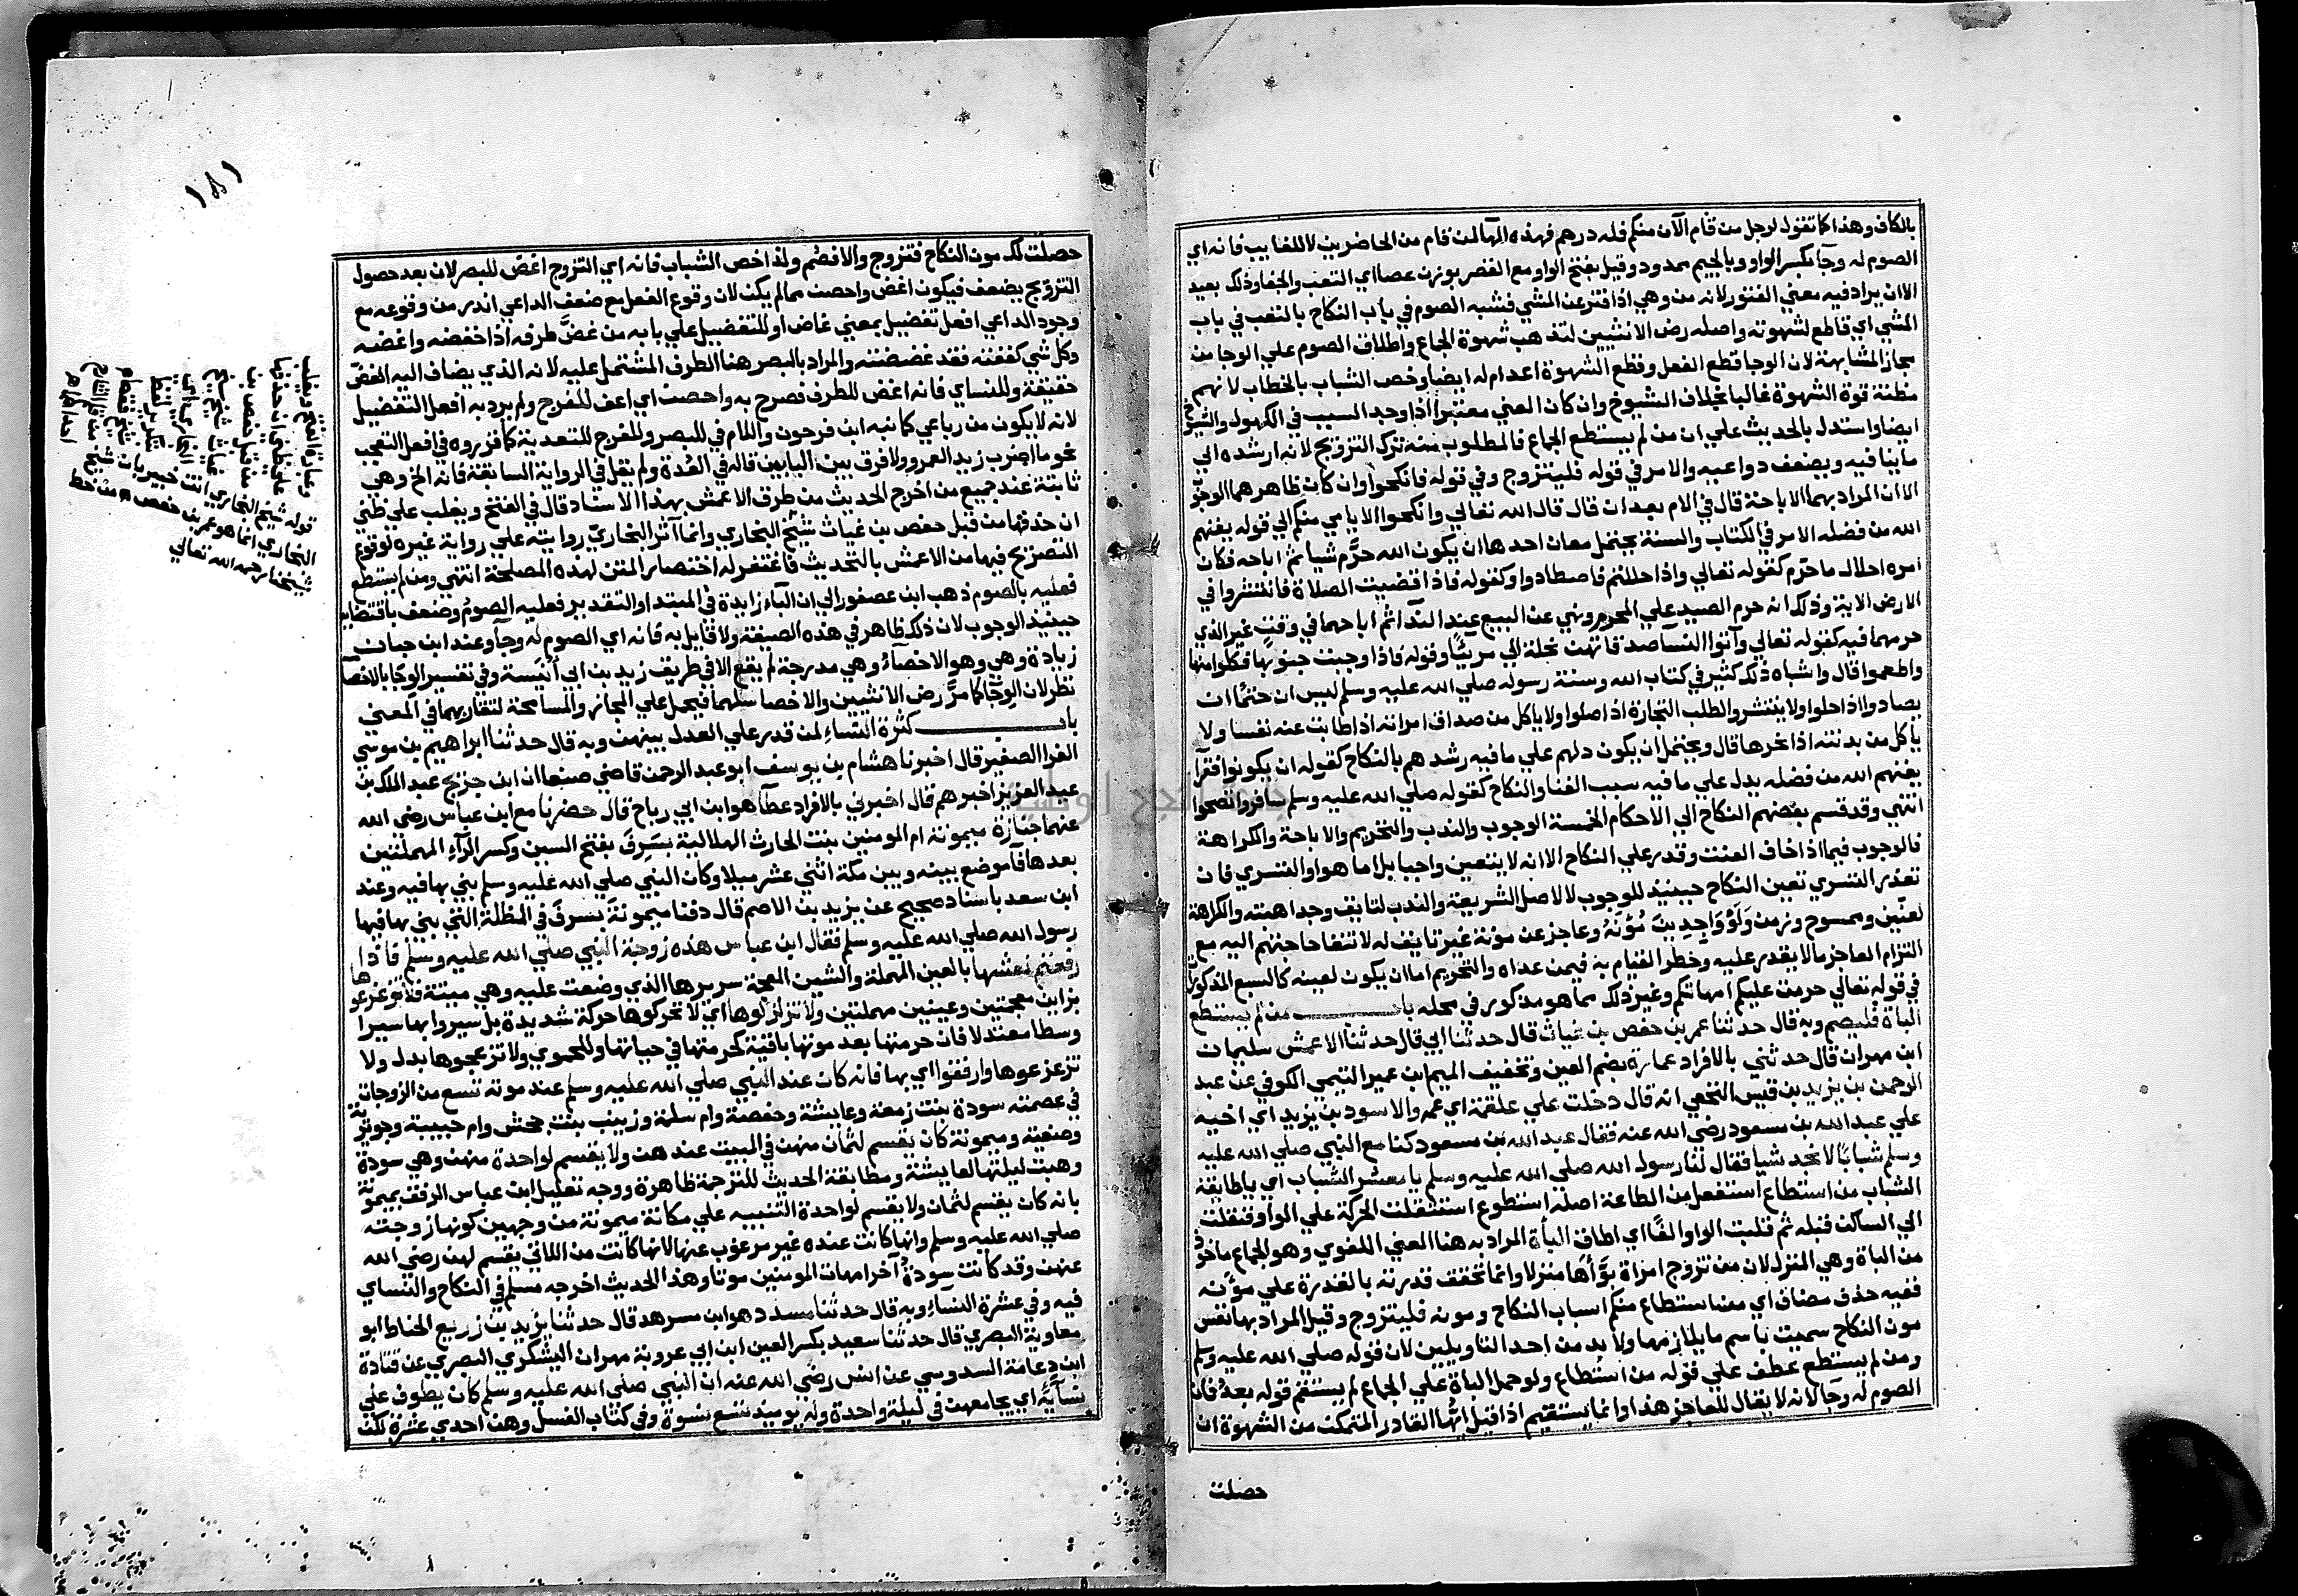 بالكاف وهذا كما تقول لرجل من قام الآن منكم فله درهم فهذه الهآ لمن قام من الحاضرين لا للغايب فانه اي
الصوم له وجآ بكسر الواو وبالجيم ممدود وقيل بفتح الواو مع القصر بوزن عصا اي التعب والجفا وذلك بعيد
الا ان يراد فيه معني الفتور لانه من وهي اذا فتر عن المشي فشبه الصوم في باب النكاح بالتعب في باب
المشي اي قاطع لشهوته واصله رض الانثيين لتذهب شهوة الجماع واطلاق الصوم علي الوجا من
مجاز المشابهة لان الوجا قطع الفعل وقطع الشهوة اعدام له ايضا وخص الشباب بالخطاب لانهم
مظنة قوة الشهوة غالبا بخلاف الشيوخ وان كان المعني معتبرا اذا وجد السبب في الكهول والشيوخ
ايضا واستدل بالحديث علي ان من لم يستطع الجماع فالمطلوب منه ترك التزويج لانه ارشده الي
ما ينافيه ويضعف دواعيه والامر في قوله فليتزوج وفي قوله فانكحوا وان كان ظاهرهما الوجوب
الا ان المراد بهما الاباحة قال في الام بعد ان قال قال الله تعالي وانكحوا الايامي منكم الي قوله يغنهم
الله من فضله الامر في الكتاب والسنة يحتمل معان احدها ان يكون الله حرّم شيا ثم اباحه فكان
امره احلال ما حرّم كقوله تعالي واذا حللتم فاصطادوا وكقوله فاذا قضيت الصلاة فانتشروا في
الارض الاية وذلك انه حرم الصيد علي المحرم ونهي عن البيع عند الندآ ثم اباحهما في وقت غير الذي
حرمهما فيه كقوله تعالي وآتوا النسآ صدقاتهن نحلة الي مريئًا وقوله فاذا وجبت جنوبها فكلوا منها
واطعموا قال واشباه ذلك كثير في كتاب الله وسنة رسوله صلي الله عليه وسلم ليس ان حتمًا ان
يصادوا اذا حلوا ولا ينتشروا لطلب التجارة اذا صلوا ولا ياكل من صداق امراته اذا طابت عنه نفسا ولا
ياكل من بدنته اذا نحرها قال ويحتمل ان يكون دلهم علي ما فيه رشدهم بالنكاح كقوله ان يكونوا فقرآ
يغنهم الله من فضله يدل علي ما فيه سبب الغنا والنكاح كقوله صلي الله عليه وسلم سافروا تصحوا
انتهي وقد قسم بعضهم النكاح الي الاحكام الخمسة الوجوب والندب والتحريم والاباحة والكراهة
فالوجوب فيما اذا خاف العنت وقدر علي النكاح الا انه لا يتعين واجبا بل اما هو او التسري فان
تعذر التسري تعين النكاح حينيذ للوجوب لا لاصل الشريعة والندب لتايق وجد اهبته والكراهة
لعنّين وممسوح وزمن ولو واجدين مؤنه وعاجز عن مؤنة غير تايق له لانتفا حاجتهم اليه مع
التزام العاجز ما لا يقدر عليه وخطر القيام به فيمن عداه والتحريم اما ان يكون لعينه كالسبع المذكورات
في قوله تعالي حرمت عليكم امهاتكم وغير ذلك مما هو مذكور في محله باب من لم يستطع
الباة فليصم وبه قال حدثنا عمر بن حفص بن غياث قال حدثنا ابي قال حدثنا الاعمش سليمان
ابن مهران قال حدثني بالافراد عمارة بضم العين وتخفيف الميم ابن عمير التيمي الكوفي عن عبد
الرحمن بن يزيد بن قيس النخعي انه قال دخلت علي علقمة اي عمه والاسود بن يزيد اي اخيه
علي عبد الله بن مسعود رضي الله عنه فقال عبد الله بن مسعود كنا مع النبي صلي الله عليه
وسلم شبابًا لا نجد شيا فقال لنا رسول الله صلي الله عليه وسلم يا معشر الشباب اي يا طايفة
الشباب من استطاع استفعل من الطاعة اصله استطوع استثقلت الحركة علي الواو فنقلت
الي الساكن قبله ثم قلبت الواو الفًا اي اطاق الباة المراد به هنا المعني اللغوي وهو الجماع ماخوذ
من الباة وهي المنزل لان من تزوج امراة بوّأها منزلا وانما تحقق قدرته بالقدرة علي مؤنه
ففيه حذف مضاف اي من استطاع منكم اسباب النكاح ومونه فليتزوج وقيل المراد بها نفس
مون النكاح سميت باسم ما يلازمها ولا بد من احد التاويلين لان قوله صلي الله عليه وسلم
ومن لم يستطع عطف علي قوله من استطاع ولو حمل الباة علي الجماع لم يستقم قوله بعد فان
الصوم له وجآ لانه لا يقال للعاجز هذا وانما يستقيم اذا قيل ايها القادر المتمكن من الشهوة ان
حصلت
١٨١
حصلت لك مون النكاح فتزوج والا فصُم ولذا خص الشباب فانه اي التزوج اغض للبصر لان بعد حصول
التزويج يضعف فيكون اغض واحصن مما لم يكن لان وقوع الفعل مع ضعف الداعي اندر من وقوعه مع
وجود الداعي افعل تفضيل بمعني غاض او للتفضيل علي بابه من غضّ طرفه اذا خفضه واغضه
وكل شي كففته فقد غضضته والمراد بالبصر هنا الطرف المشتمل عليه لانه الذي يضاف اليه الغضّ
حقيقة وللنساي فانه اغض للطرف فصرح به واحصن اي اعف للفرج ولم يرد به افعل التفضيل
لانه لا يكون من رباعي كما نبه ابن فرحون واللام في للبصر وللفرج للتعدية كما قرروه في افعل التعجب
نحو ما اضرب زيد العمرو ولا فرق بين البابين قاله في العُدة ولم يقل في الرواية السابقة فانه الخ وهي
ثابتة عند جميع من اخرج الحديث من طرف الاعمش بهذا الاسناد قال في الفتح ويغلب علي ظني
ان حذفها من قبل حفص بن غياث شيخ البخاري وانما آثر البخاريّ روايته علي رواية غيره لوقوع
التصريح فيها من الاعمش بالتحديث فاغتفر له اختصار المتن لهذه المصلحة انتهي ومن لم يستطع
فعليه بالصوم ذهب ابن عصفور الي ان البآء زايدة في المبتدا والتقدير فعليه الصوم وضعف باقتضايه
حينيذ الوجوب لان ذلك ظاهر في هذه الصيغة ولا قايل به فانه اي الصوم له وجآ وعند ابن حبان
زيادة وهي وهو الاخصآء وهي مدرجة لم يقع الا في طريق زيد بن ابي أنيسة وفي تفسير الوجا بالاخصآ
نظر لان الوِجآ كما مرّ رض الانثيين والاخصا سلهما فيحمل علي المجاز والمسامحة لتقاربهما في المعني
باب كثرة النساءِ لمن قدر علي العدل بينهن وبه قال حدثنا ابراهيم بن موسي
الفرا الصغير قال اخبرنا هشام بن يوسف ابو عبد الرحمن قاضي صنعا ان ابن جريج عبد الملك بن
عبد العزيز اخبرهم قال اخبرني بالافراد عطآ هو ابن ابي رباح قال حضرنا مع ابن عباس رضي الله
عنهما جنازة ميمونة ام المومنين بنت الحارث الهلالية بسَرِفَ بفتح السين وكسر الرآء المهملتين
بعدها فآ موضع بينه وبين مكة اثني عشر ميلا وكان النبي صلي الله عليه وسلم بني بها فيه وعند
ابن سعد باسناد صحيح عن يزيد بن الاصم قال دفنا ميمونة بسرفَ في الظلة التي بني بها فيها
رسول الله صلي الله عليه وسلم فقال ابن عباس هذه زوجة النبي صلي الله عليه وسلم فاذا
رفعتم نعشها بالعين المهملة والشين المعجمة سريرها الذي وضعت عليه وهي ميتة فلا تزعزعوها
بزاين معجمتين وعينين مهملتين ولا تزلزلوها اي لا تحركوها حركة شديدة بل سيروا بها سيرا
وسطا معتدلا فان حرمتها بعد موتها باقية كحرمتها في حياتها وللحموي ولا تزعجوها بدل ولا
تزعزعوها وارفقوا اي بها فانه كان عند النبي صلي الله عليه وسلم عند موته تسع من الزوجات
في عصمته سودة بنت زمعة وعايشة وحفصة وام سلمة وزينب بنت جحش وام حبيبة وجويرية
وصفية وميمونة كان يقسم لثمان منهن في المبيت عندهن ولا يقسم لواحدة منهن وهي سودة
وهبت ليلتها لعايشة ومطابقة الحديث للترجمة ظاهرة ووجه تعليل ابن عباس الرفق بميمونة
بانه كان يقسم لثمان ولا يقسم لواحدة التنبيه علي مكانة ميمونة من وجهين كونها زوجته
صلي الله عليه وسلم وانها كانت عنده غير مرغوب عنها لانها كانت من اللاتي يقسم لهن رضي الله
عنهن وقد كانت سودةُ آخر امهات المومنين موتا وهذا الحديث اخرجه مسلم في النكاح والنساي
فيه وفي عشرة النساءِ وبه قال حدثنا مسدد هو ابن مسرهد قال حدثنا يزيد بن زريع الخياط ابو
معاوية البصري قال حدثنا سعيد بكسر العين ابن ابي عروبة مهران اليشكري البصري عن قتادة
ابن دعامة السدوسي عن انس رضي الله عنه ان النبي صلي الله عليه وسلم كان يطوف علي
نسآيه اي يجامعهن في ليلة واحدة وله يوميذ تسع نسوة وفي كتاب الغسل وهن احدي عشرة لكن
وعبارة الفتح ويغلب
علي ظني ان حذفها
من قبل حفص بن
غياث شيخ شيخ
البخاري
قوله شيخ البخاري انت خبير بان شيخ
البخاري انما هو عمر بن حفص من خط
شيخنا رحمه الله تعالي